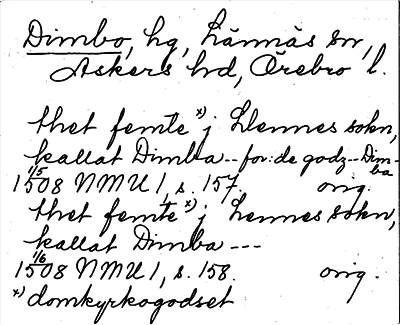 Dimbo, hg, Lännäs sn,
Askers hd, Örebro l.
thet femte x) j Lennes sokn,
kallat Dimba -- for:de godz -- Dimba
1/5 1508 NMU 1, s. 157. orig.
thet femte x) j Lennes sokn,
kallat Dimba ---
1/6 1508 NMU 1, s. 158. orig.
x) domkyrkogodset